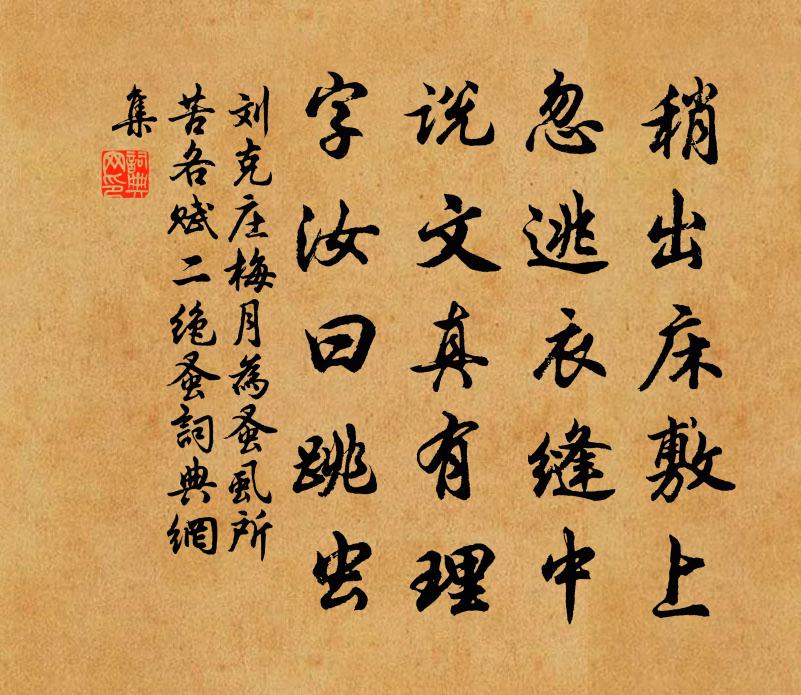 稍出床敷上
忽逃衣缝中
说文真有理
字汝曰跳虫
刘克庄梅月為蚤虱所
苦各赋二绝蚤詞典網
集
詞典
网印